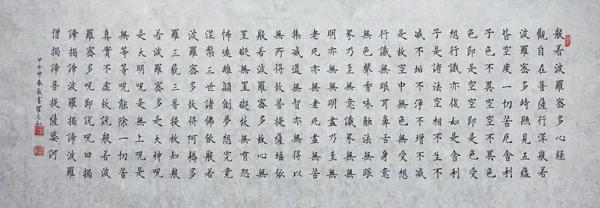 般若波羅蜜多心經
觀自在菩薩行深般若
波羅蜜多時照見五蘊
皆空度一切苦厄舍利
子色不異空空不異色
色即是空空即是色受
想行識亦復如是舍利
子是諸法空相不生不
滅不垢不淨不增不減
是故空中無色無受想
行識無眼耳鼻舌身意
無色聲香味觸法無眼
界乃至無意識界無無
明亦無無明盡乃至無
老死亦無老死盡無苦
集滅道無智亦無得以
無所得故菩提薩埵依
般若波羅蜜多故心無
罣礙無罣礙故無有恐
怖遠離顛倒夢想究竟
涅槃三世諸佛依般若
波羅蜜多故得阿耨多
羅三藐三菩提故知般
若波羅蜜多是大神呪
是大明呪是無上呪是
無等等呪能除一切苦
真實不虛故說般若波
羅蜜多呪即說呪曰揭
諦揭諦波羅揭諦波羅
僧揭諦菩提薩婆訶
甲午仲春敬書